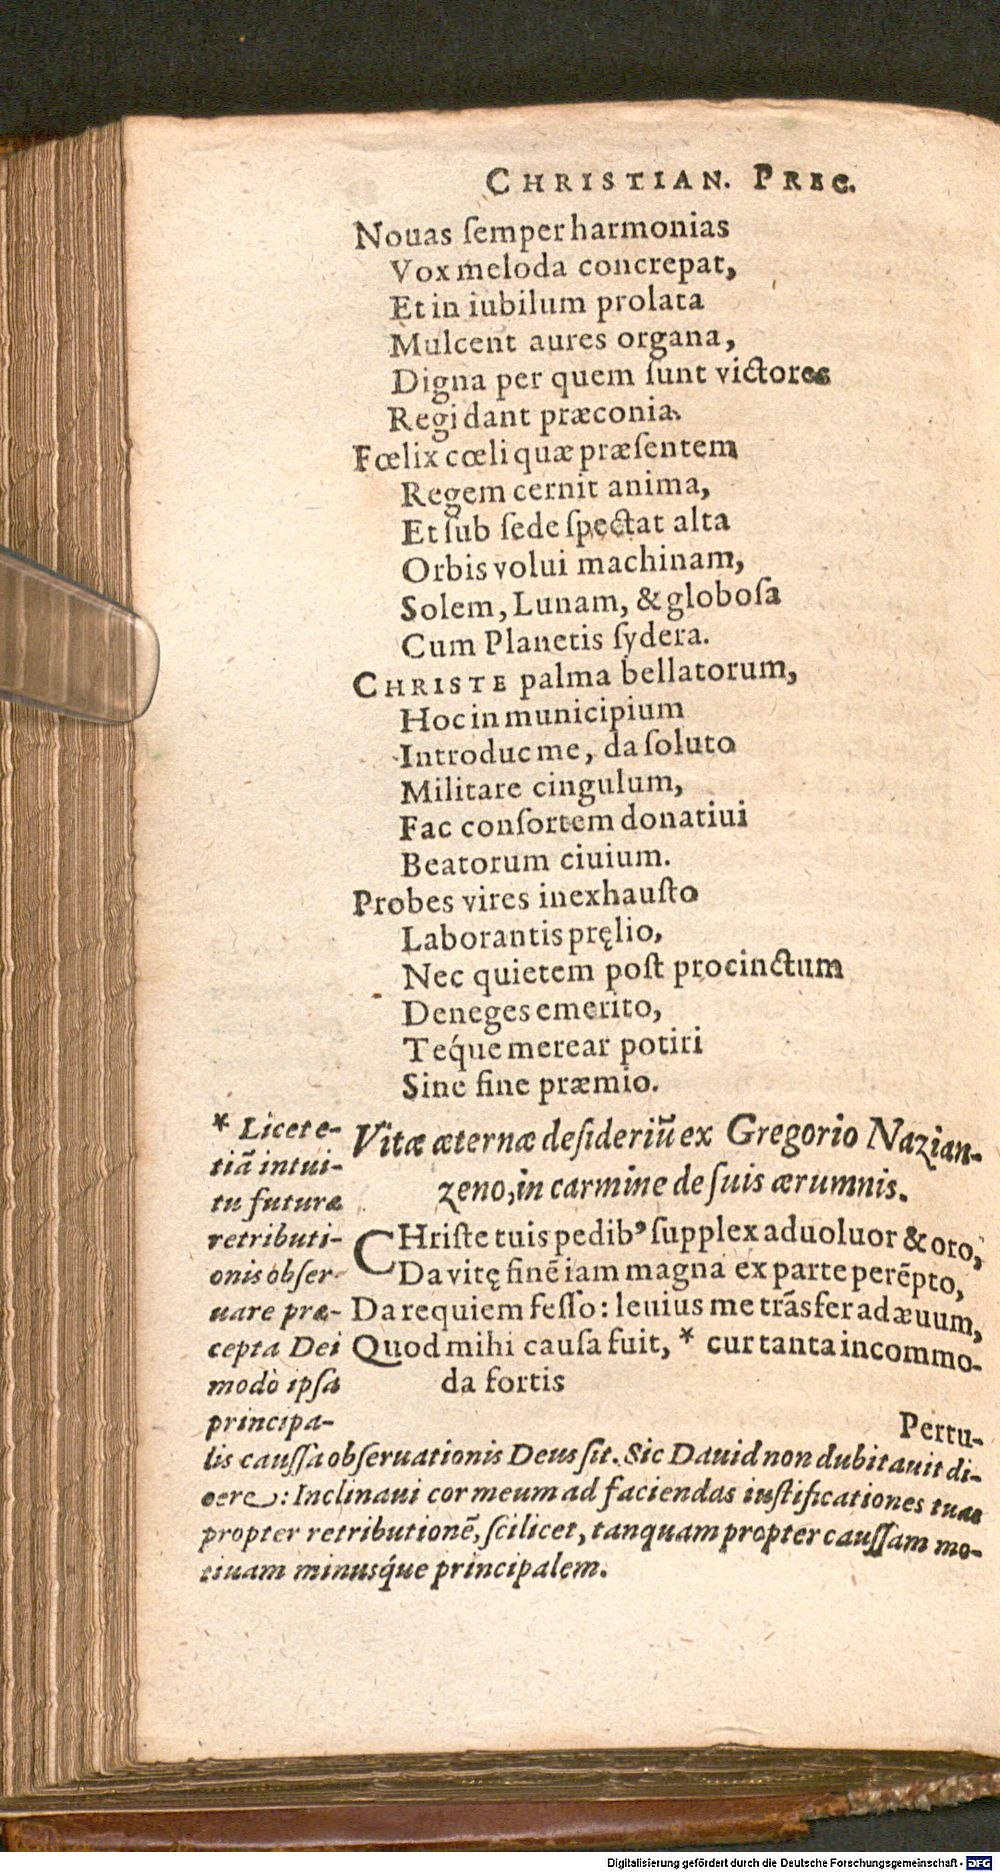 CHRISTIAN. PREC.
Nouas ſemper harmonias
Vox meloda concrepat,
Et in iubilum prolata
Mulcent aures organa,
Digna per quem ſunt victores
Regi dant præconia.
Fœlix cœli quæ præſentem
Regem cernit anima,
Et ſub ſede ſpectat alta
Orbis volui machinam,
Solem, Lunam, & globoſa
Cum Planetis ſydera.
CHRISTE palma bellatorum,
Hoc in municipium
Introduc me, da ſoluto
Militare cingulum,
Fac conſortem donatiui
Beatorum ciuium.
Probes vires inexhauſto
Laborantis pręlio,
Nec quietem poſt procinctum
Deneges emerito,
Teq́ue merear potiri
Sine fine præmio.
Vitæ æternæ deſideriũ ex Gregorio Nazian-
zeno, in carmine de ſuis ærumnis.
CHriſte tuis pedibꝰ ſupplex aduoluor & oro,
Da vitę finẽ iam magna ex parte perẽpto,
Da requiem feſſo: leuius me trãsfer ad æuum,
Quod mihi cauſa fuit, * cur tanta incommo-
da fortis
Pertu-
* Licet e-
tiã intui-
tu futuræ
retributi-
onis obſer-
uare præ-
cepta Dei
modò ipſa
principa-
lis cauſſa obſeruationis Deus ſit. Sic Dauid non dubitauit di-
cere: Inclinaui cor meum ad faciendas iuſtificationes tuas
propter retributionẽ, ſcilicet, tanquam propter cauſſam mo-
tiuam minusq́ue principalem.
Digitalisierung gefördert durch die Deutsche Forschungsgemeinschaft - DFG